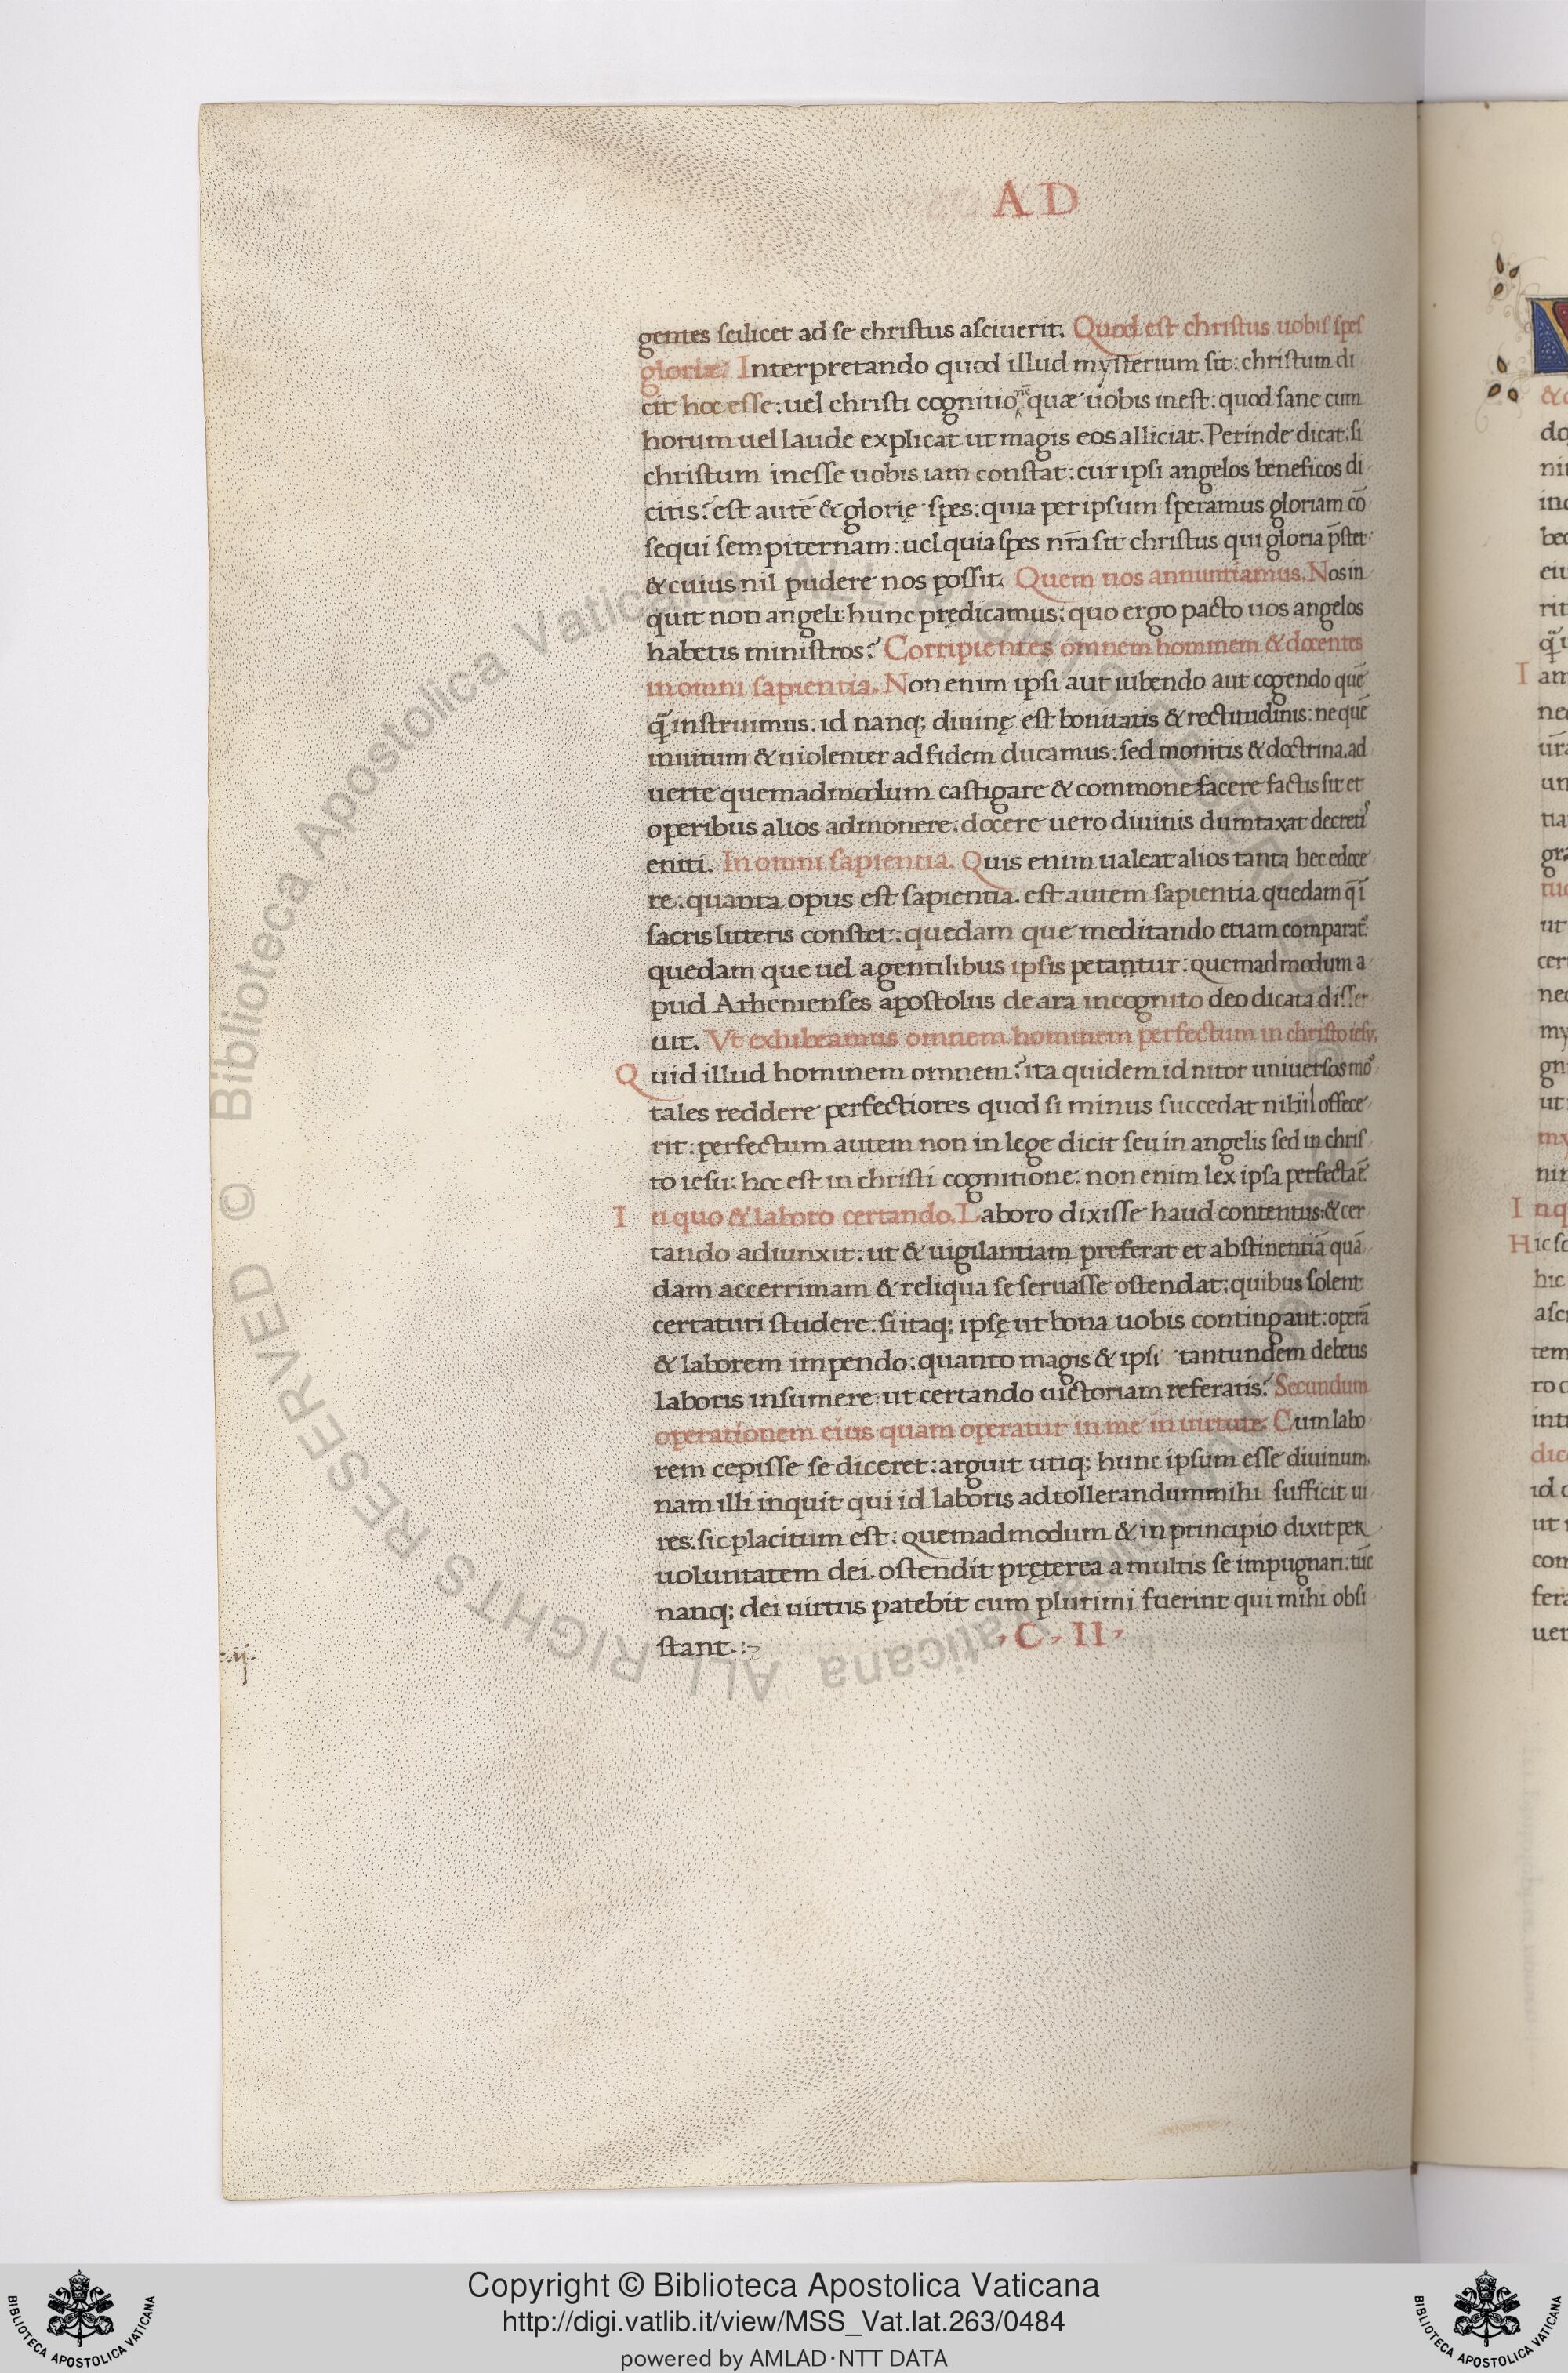 AD
gentes scilicet ad se christus asciuerit. Quod est christus uobis spes
gloriæ. Interpretando quod illud mysterium sit: christum di
cit hoc esse: uel christi cognitionē quæ uobis inest: quod sane cum
horum uel laude explicat ut magis eos alliciat. Perinde dicat: si
christum inesse uobis iam constat: cur ipsi angelos beneficos di
citis? est autē & glorię spes: quia per ipsum speramus gloriam cō
sequi sempiternam: uel quia spes nr̄a sit christus qui gloria p̄stet
& cuius nil pudere nos possit. Quem nos annuntiamus. Nos in
quit non angeli hunc prędicamus: quo ergo pacto uos angelos
habetis ministros? Corripientes omnem hominem & docentes
in omni sapientia. Non enim ipsi aut iubendo aut cogendo quē
instruimus. id nanq; diuinę est bonitatis & rectitudinis: ne quē
inuitum & uiolenter ad fidem ducamus: sed monitis & doctrina. ad
uerte quemadmodum castigare & commonefacere factis sit et
operibus alios admonere: docere uero diuinis dumtaxat decretis
eniti. In omni sapientia. Quis enim ualeat alios tanta hec edoce
re: quanta opus est sapientia. est autem sapientia quedam
sacris litteris constet: quedam que meditando etiam comparat᷑
quedam que uel a gentilibus ipsis petantur: quemadmodum a
pud Athenienses apostolus de ara incognito deo dicata disser
uit. Vt exhibeamus omnem hominem perfectum in christo iesu.
Quid illud hominem omnem? ita quidem id nitor uniuersos mo
tales reddere perfectiores quod si minus succedat nihil offece
rit: perfectum autem non in lege dicit seu in angelis sed in chris
to iesu: hoc est in christi cognitione: non enim lex ipsa perfecta ē
In quo & laboro certando. Laboro dixisse haud contentus: & cer
tando adiunxit: ut & uigilantiam preferat et abstinentiā quā
dam accerrimam & reliqua se seruasse ostendat: quibus solent
certaturi studere. si itaq; ipsę ut bona uobis contingant: operā
& laborem impendo: quanto magis & ipsi tantundem debetis
laboris insumere ut certando uictoriam referatis? Secundum
operationem eius quam operatur in me in uirtute. Cum labo
rem cepisse se diceret: arguit utiq; hunc ipsum esse diuinum.
nam illi inquit qui id laboris ad tollerandum mihi sufficit ui
res. sic placitum est: quemadmodum & in principio dixit per
uoluntatem dei. ostendit pręterea a multis se impugnari: tūc
nanq; dei uirtus patebit cum plurimi fuerint qui mihi obsi
stant. C. II
.ij.
Copyright © Biblioteca Apostolica Vaticana
http://digi.vatlib.it/view/MSS_Vat.lat.263/0484
powered by AMLAD·NTT DATA
BIBLIOTECA APOSTOLICA VATICANA
BIBLIOTECA APOSTOLICA VATICANA